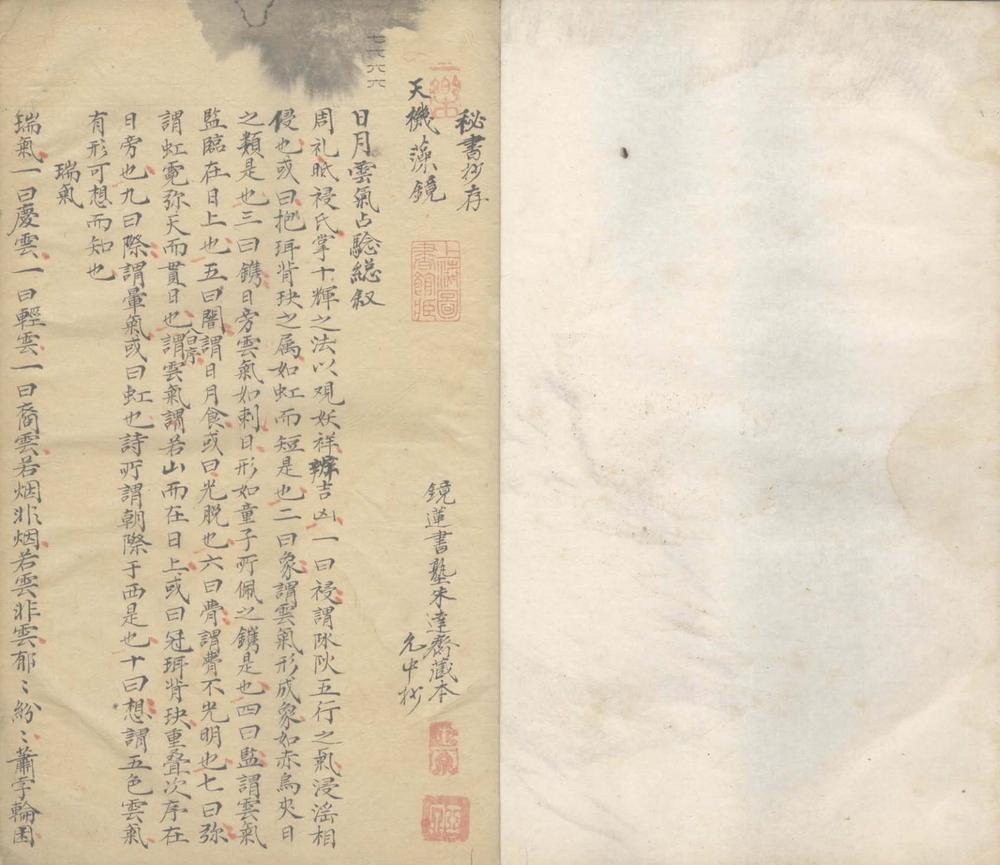 秘書抄存
天機藻鏡
鏡蓮書塾朱達齋藏本
允中抄
上海圖書館藏
七六六六
日月雲氣占驗総叙
周礼眂祲氏掌十輝之法以观妖祥辨吉凶一曰祲謂陰陽五行之氣浸滛相
侵也或曰抱珥背玦之属如虹而短是也二曰象謂雲氣形成象如赤烏夾日
之類是也三曰鐫日旁雲氣如刺日形如童子所佩之鐫是也四曰監謂雲氣
監臨在日上也五曰闇謂日月食或曰光脱也六曰瞢謂瞢不光明也七曰弥
謂虹霓弥天而貫日也八曰序謂雲氣謂若山而在日上或曰冠珥背玦重叠次序在
日旁也九曰隮謂暈氣或曰虹也詩所謂朝隮于西是也十曰想謂五色雲氣
有形可想而知也
瑞氣
瑞氣一曰慶雲一曰輕雲一曰裔雲若烟非烟若雲非雲郁〻紛〻蕭字輪囷